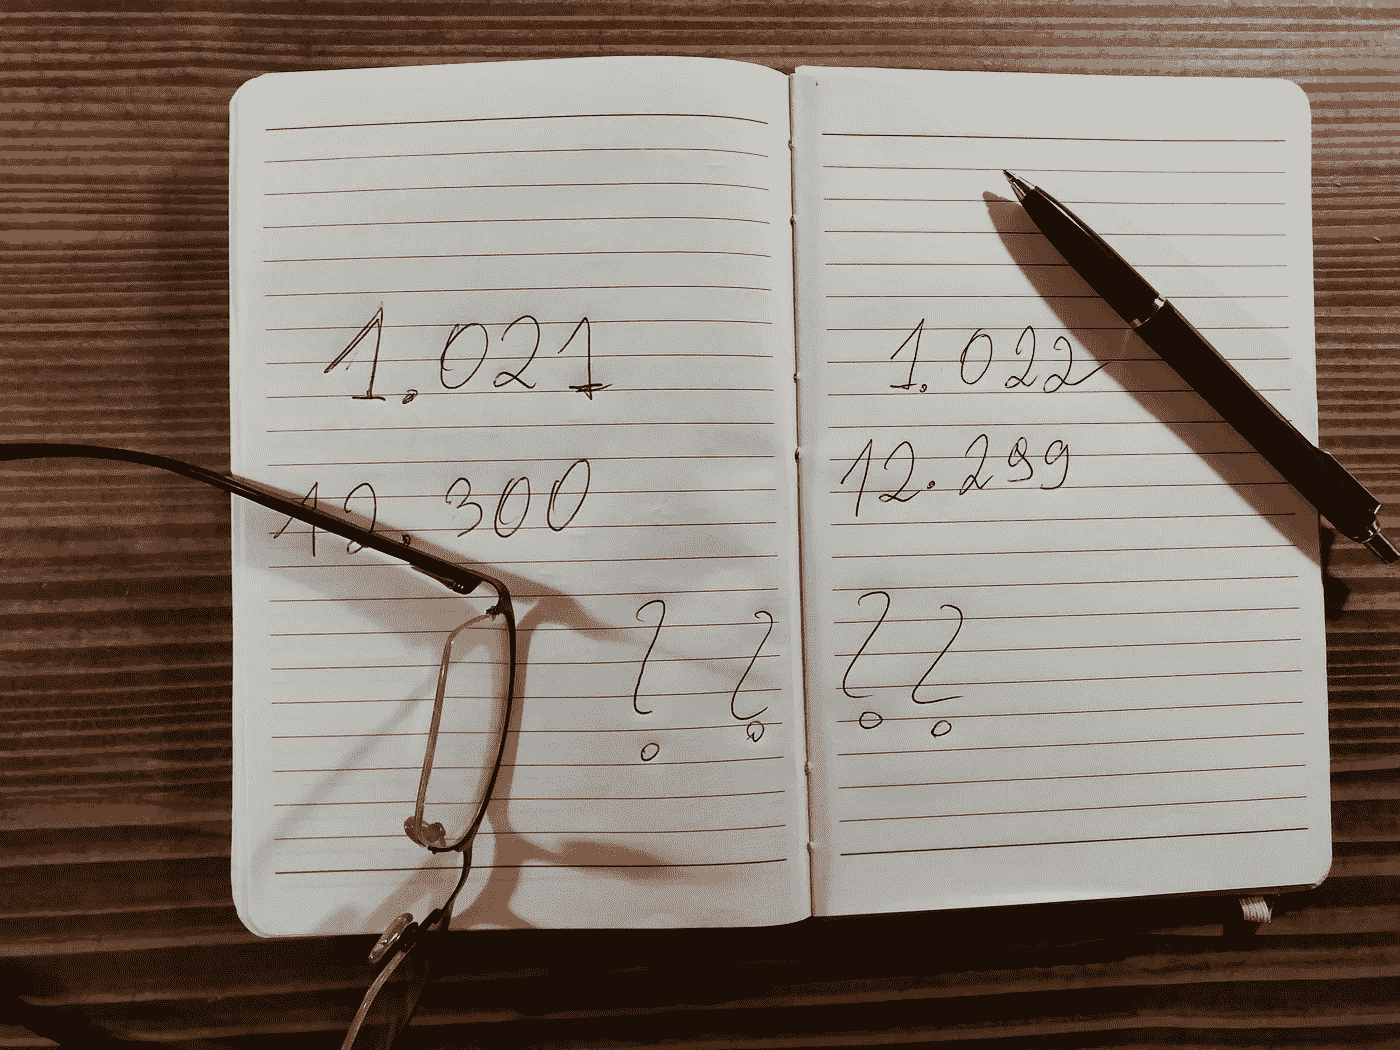 1.021
12.300
? ?
1.022
12.299
? ?